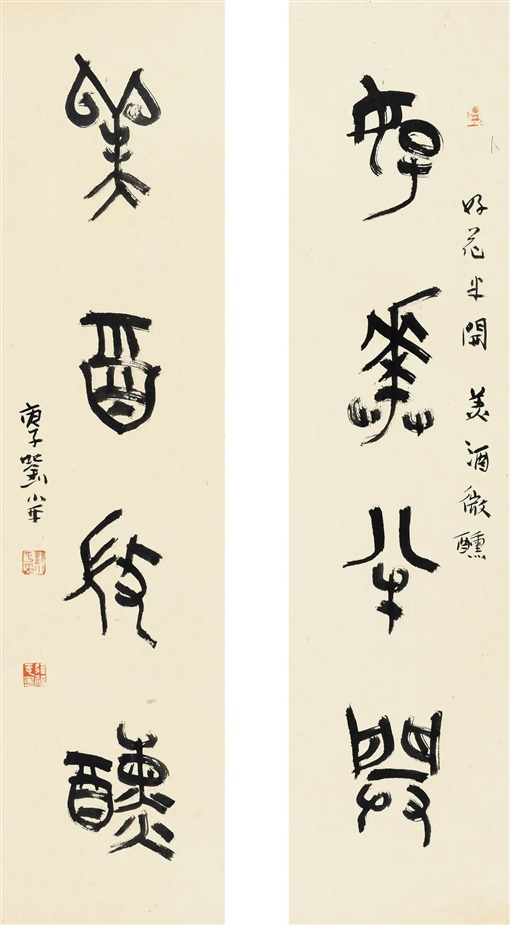 好花半開 美酒微醺
好花半開
美酒微醺
庚子